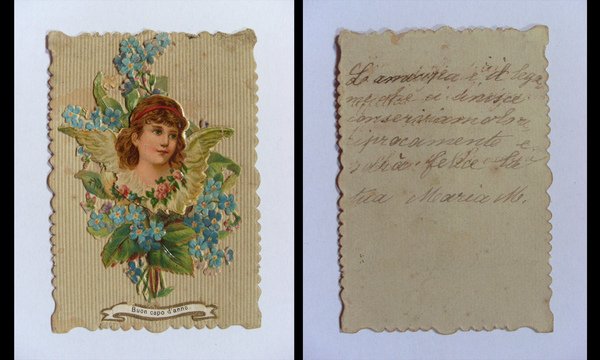 Buon capo d'anno
L'amicizia è il lega
me che ci unisce
conserviamola re
ciprocamente e
sarà felice la
tua Maria M.